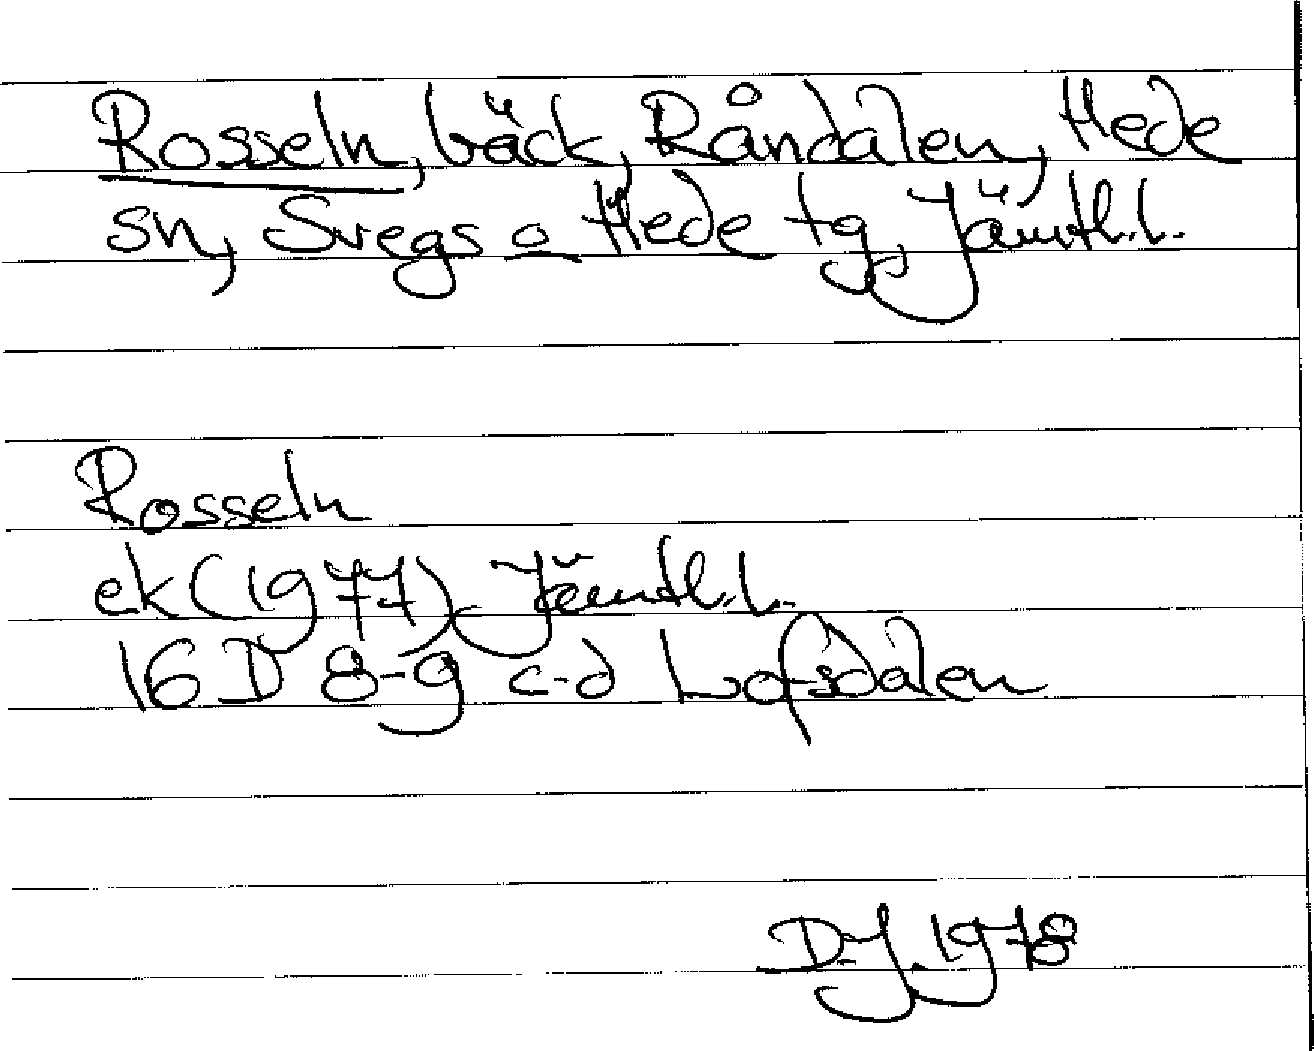 Rosseln, bäck, Råndalen, Hede
sn, Svegs o Hede tg, Jämtl.l.
Rosseln
ek (1977) Jämtl.l.
16 D 8-9 c-d Lofsdalen
D.J. 1978